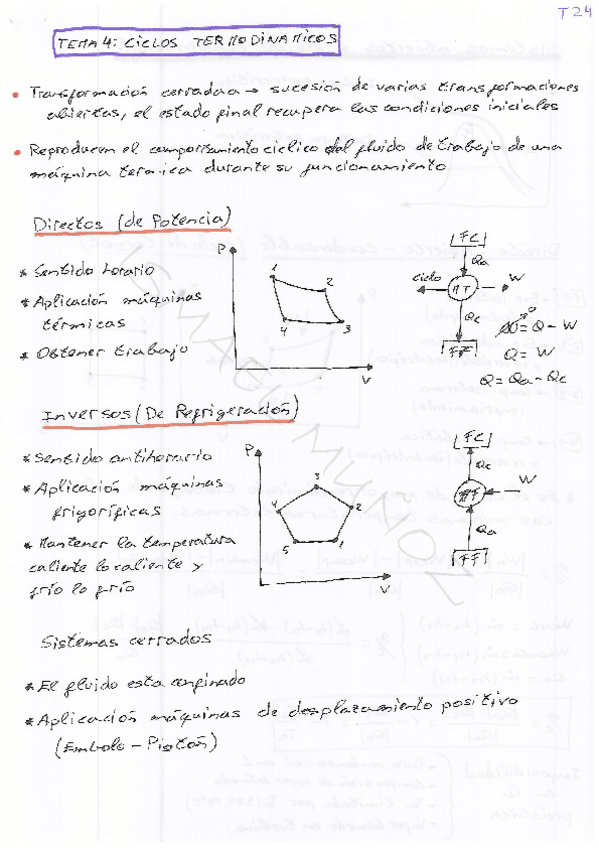 T24
TEMA 4: CICLOS TERMODINAMICOS
• Transformación cerrada → sucesión de varias transformaciones
abiertas, el estado final recupera las condiciones iniciales
• Reproducen el comportamiento cíclico del fluido de trabajo de una
máquina termica durante su funcionamiento
Directos (de Potencia)
* Sentido horario
* Aplicación máquinas
térmicas
* Obtener trabajo
P
1
2
3
4
V
FC
Qa
ciclo
MT
W
Qc
FF
ΔU = Q - W
0
Q = W
Q = Qa - Qc
Inversos (De Refrigeración)
* Sentido antihorario
* Aplicación máquinas
frigoríficas
* Mantener la temperatura
caliente lo caliente y
frío lo frío
P
3
4
2
5
1
V
FC
Qc
W
Qa
FF
Sistemas cerrados
* El fluido esta confinado
* Aplicación máquinas de desplazamiento positivo
(Embolo - Pistón)
ISMAEL MUÑOZ